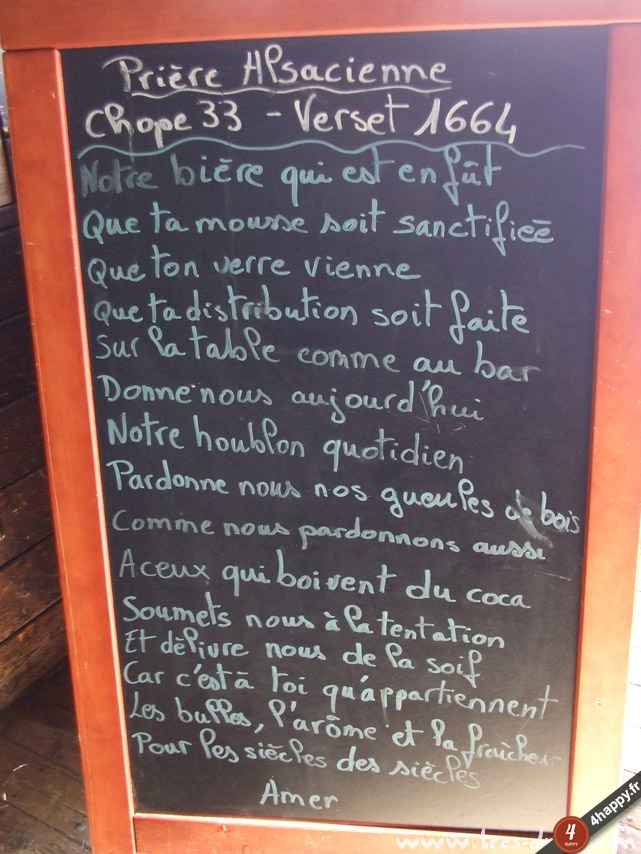 Prière Alsacienne
Chope 33 - Verset 1664
Notre bière qui est en fût
Que ta mousse soit sanctifiéé
Que ton verre vienne
Que ta distribution soit faite
Sur la table comme au bar
Donne nous aujourd'hui
Notre houblon quotidien
Pardonne nous nos gueules de bois
Comme nous pardonnons aussi
A ceux qui boivent du coca
Soumets nous à la tentation
Et délivre nous de la soif
Car c'est à toi qu'appartiennent
Les bulles, l'arôme et la fraîcheur
Pour les siècles des siècles
Amer
4happy.fr
4